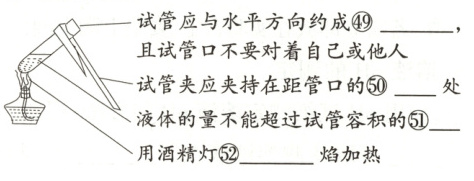 试管应与水平方向约成㊾______,
且试管口不要对着自己或他人
试管夹应夹持在距管口的㊿____处
液体的量不能超过试管容积的51___
用酒精灯52______焰加热